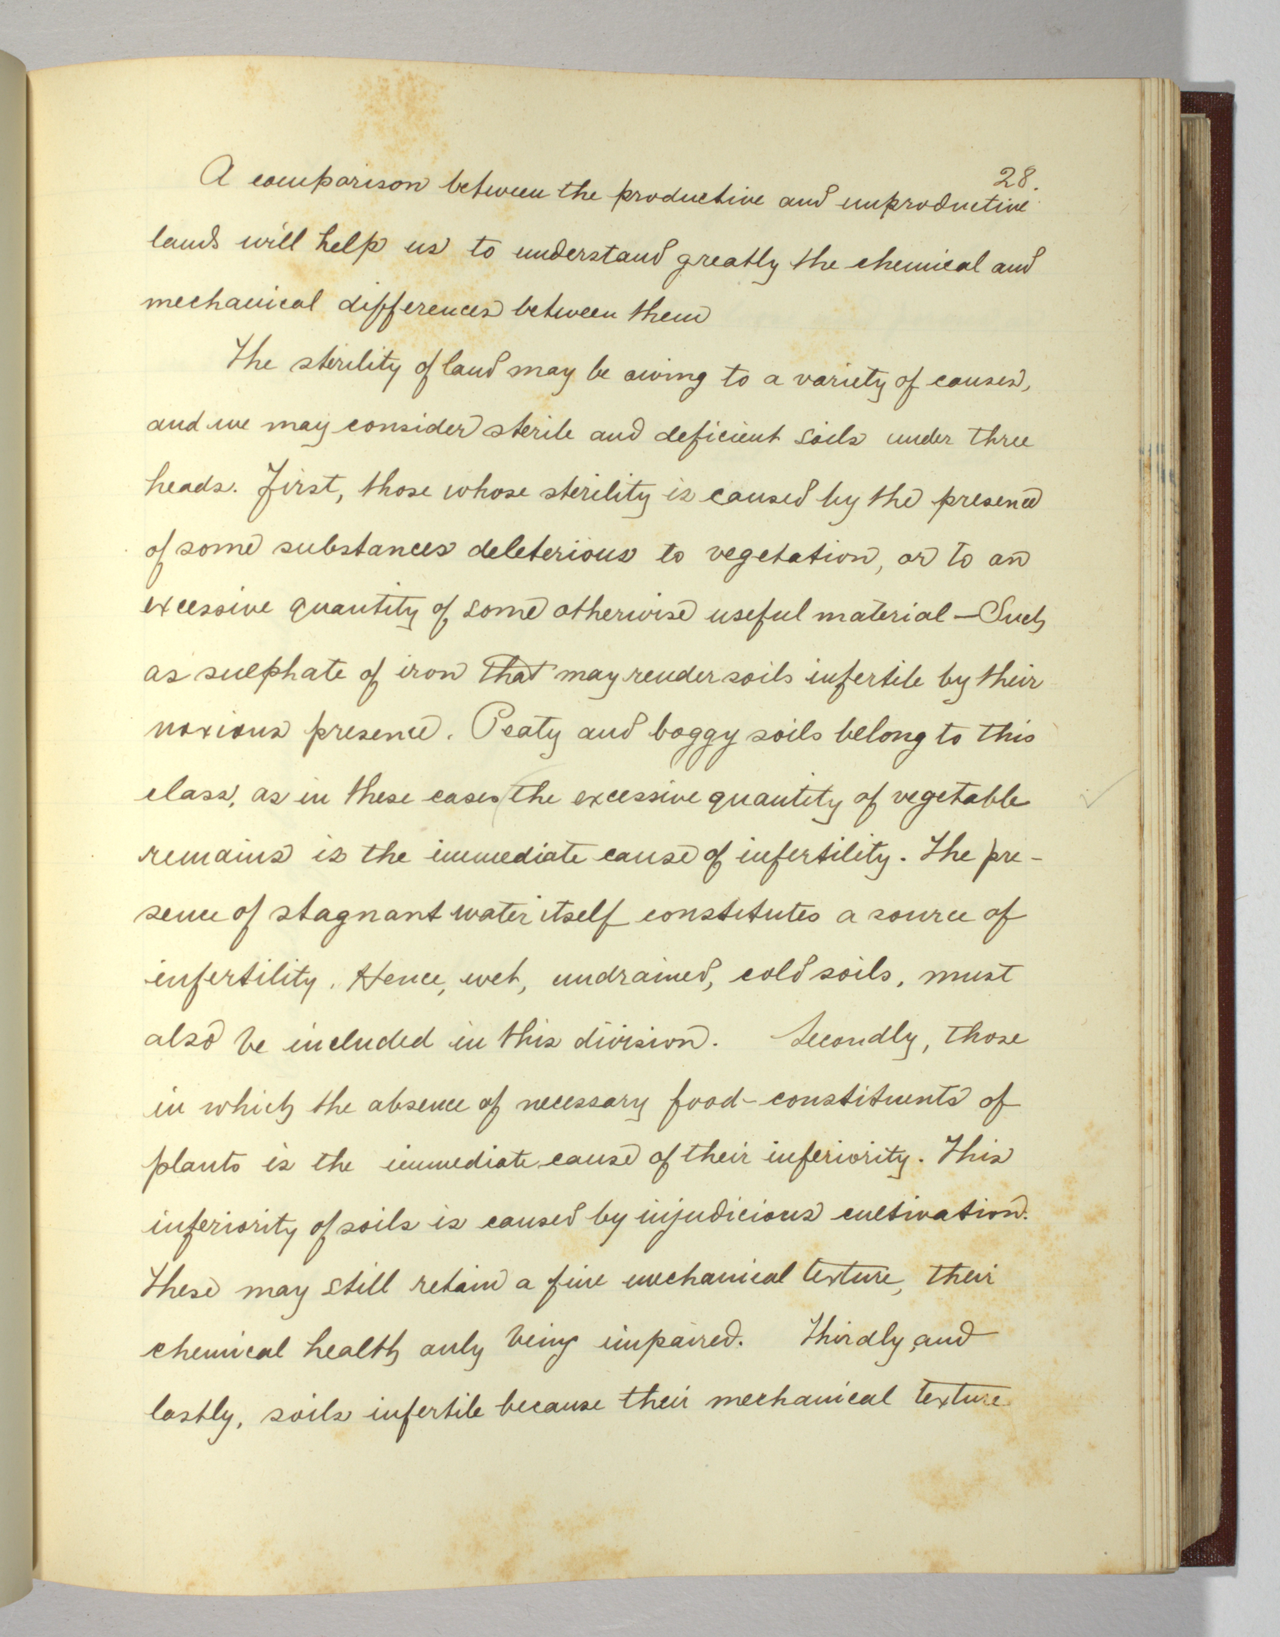 28.
A comparison between the productive and unproductive
lands will help us to understand greatly the chemical and
mechanical differences between them
The sterility of land may be owing to a variety of causes,
and we may consider sterile and deficient soils under three
heads. First, those whose sterility is caused by the presence
of some substances deleterious to vegetation, or to an
excessive quantity of some otherwise useful material—Such
as sulphate of iron that may render soils infertile by their
noxious presence. Peaty and boggy soils belong to this
class, as in these cases the excessive quantity of vegetable
remains is the immediate cause of infertility. The pre-
sence of stagnant water itself constitutes a source of
infertility. Hence, wet, undrained, cold soils, must
also be included in this division. Secondly, those
in which the absence of necessary food-constituents of
plants is the immediate cause of their inferiority. This
inferiority of soils is caused by injudicious cultivation.
These may still retain a fine mechanical texture, their
chemical health only being impaired. Thirdly, and
lastly, soils infertile because their mechanical texture